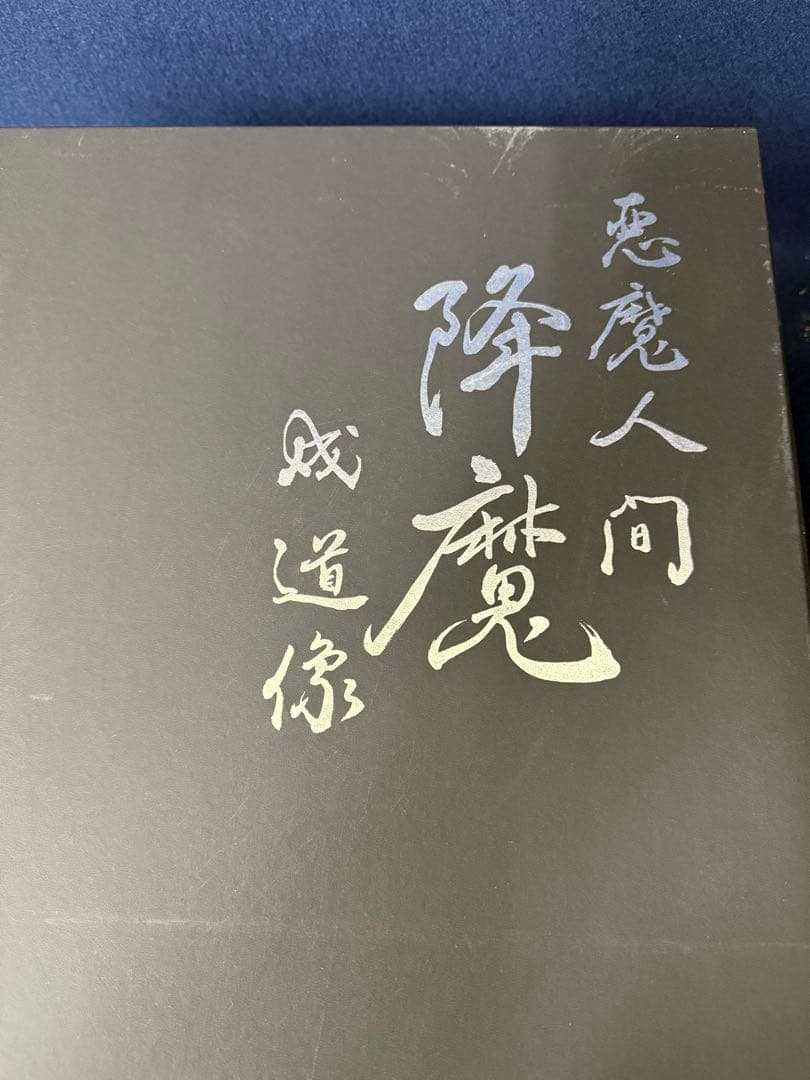 悪魔人間
降魔
成道像